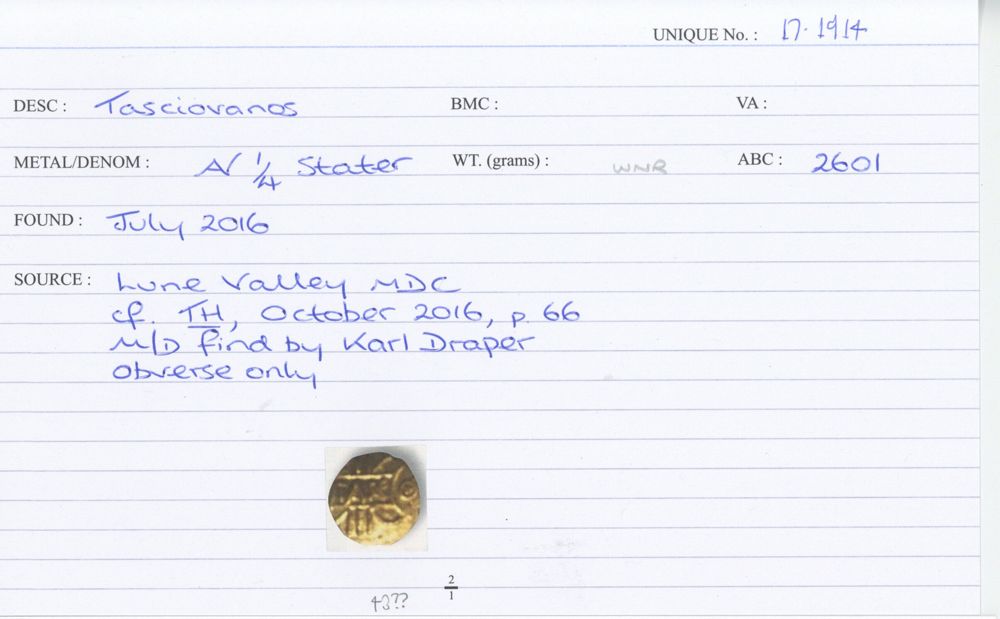 UNIQUE No. : 17.1914
DESC : Tasciovanos BMC : VA :
METAL/DENOM : A/ 1/4 Stater WT. (grams) : WNR ABC : 2601
FOUND : July 2016
SOURCE : Lune Valley MDC
cf. TH, October 2016, p. 66
M/D find by Karl Draper
obverse only
TASC
2/1